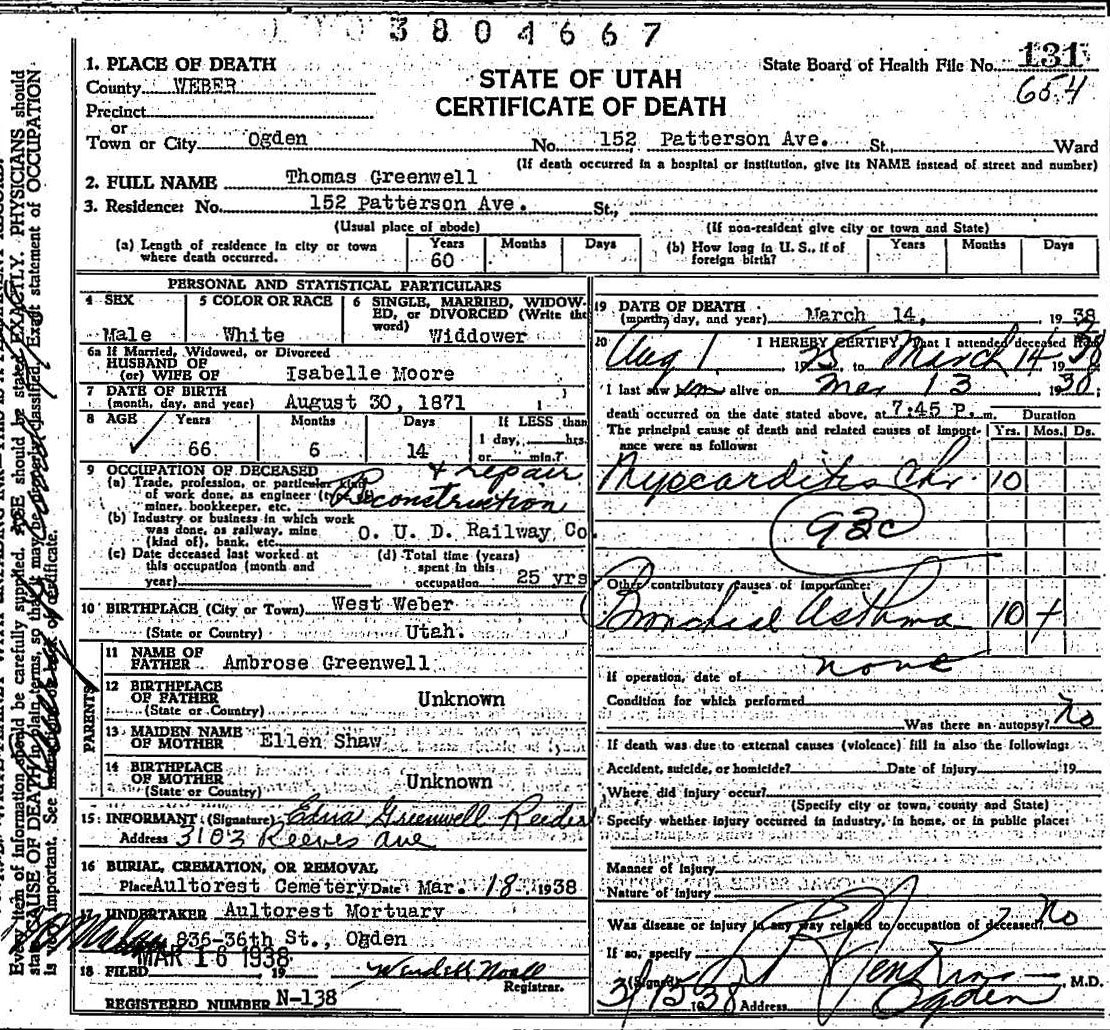 3804667
State Board of Health File No. 131
654
STATE OF UTAH
CERTIFICATE OF DEATH
1. PLACE OF DEATH
County WEBER
Precinct
or
Town or City Ogden No. 152 Patterson Ave. St., Ward
(If death occurred in a hospital or institution, give its NAME instead of street and number)
2. FULL NAME Thomas Greenwell
3. Residence: No. 152 Patterson Ave. St.,
(Usual place of abode) (If non-resident give city or town and State)
(a) Length of residence in city or town where death occurred. Years 60 Months Days
(b) How long in U. S., if of foreign birth? Years Months Days
PERSONAL AND STATISTICAL PARTICULARS
4 SEX Male
5 COLOR OR RACE White
6 SINGLE, MARRIED, WIDOW-
ED, or DIVORCED (Write the
word) Widdower
6a If Married, Widowed, or Divorced
HUSBAND OF
(or) WIFE OF Isabelle Moore
7 DATE OF BIRTH
(month, day, and year) August 30, 1871
8 AGE Years 66 Months 6 Days 14
If LESS than
1 day, hrs.
or min.?
9 OCCUPATION OF DECEASED
(a) Trade, profession, or particular kind
of work done, as engineer
miner, bookkeeper, etc.
& repair
Reconstruction
(b) Industry or business in which work
was done, as railway, mine
(kind of), bank, etc. O. U. D. Railway Co.
(c) Date deceased last worked at
this occupation (month and
year)
(d) Total time (years)
spent in this
occupation 25 yrs
10 BIRTHPLACE (City or Town) West Weber
(State or Country) Utah.
PARENTS
11 NAME OF
FATHER Ambrose Greenwell
12 BIRTHPLACE
OF FATHER Unknown
(State or Country)
13 MAIDEN NAME
OF MOTHER Ellen Shaw
14 BIRTHPLACE
OF MOTHER Unknown
(State or Country)
15 INFORMANT (Signature) Edna Greenwell Reeder
Address 3103 Reeves Ave
16 BURIAL, CREMATION, OR REMOVAL
Place Aultorest Cemetery Date Mar. 18 1938
17 UNDERTAKER Aultorest Mortuary
836-36th St., Ogden
MAR 16 1938
18 FILED 19 Wendell Noall
Registrar.
REGISTERED NUMBER N-138
19 DATE OF DEATH
(month, day, and year) March 14, 19 38
20 I HEREBY CERTIFY, That I attended deceased from
Aug 1, 1925, to March 14 1938
I last saw him alive on Mar 13 1938;
death occurred on the date stated above, at 7:45 P. m. Duration
The principal cause of death and related causes of import-
ance were as follows: Yrs. Mos. Ds.
Myocarditis Chr. 10
93c
Other contributory causes of importance:
Bronchial Asthma 10 +
If operation, date of none
Condition for which performed
Was there an autopsy? No
If death was due to external causes (violence) fill in also the following:
Accident, suicide, or homicide? Date of injury 19
Where did injury occur?
(Specify city or town, county and State)
Specify whether injury occurred in industry, in home, or in public place:
Manner of injury
Nature of injury
Was disease or injury in any way related to occupation of deceased? No
If so, specify
(Signed) Jenkins M.D.
3/15 1938 Address Ogden
Every item of information should be carefully supplied. AGE should be stated EXACTLY. PHYSICIANS should
state CAUSE OF DEATH in plain terms, so that it may be properly classified. Exact statement of OCCUPATION
is very important. See instructions on back of certificate.